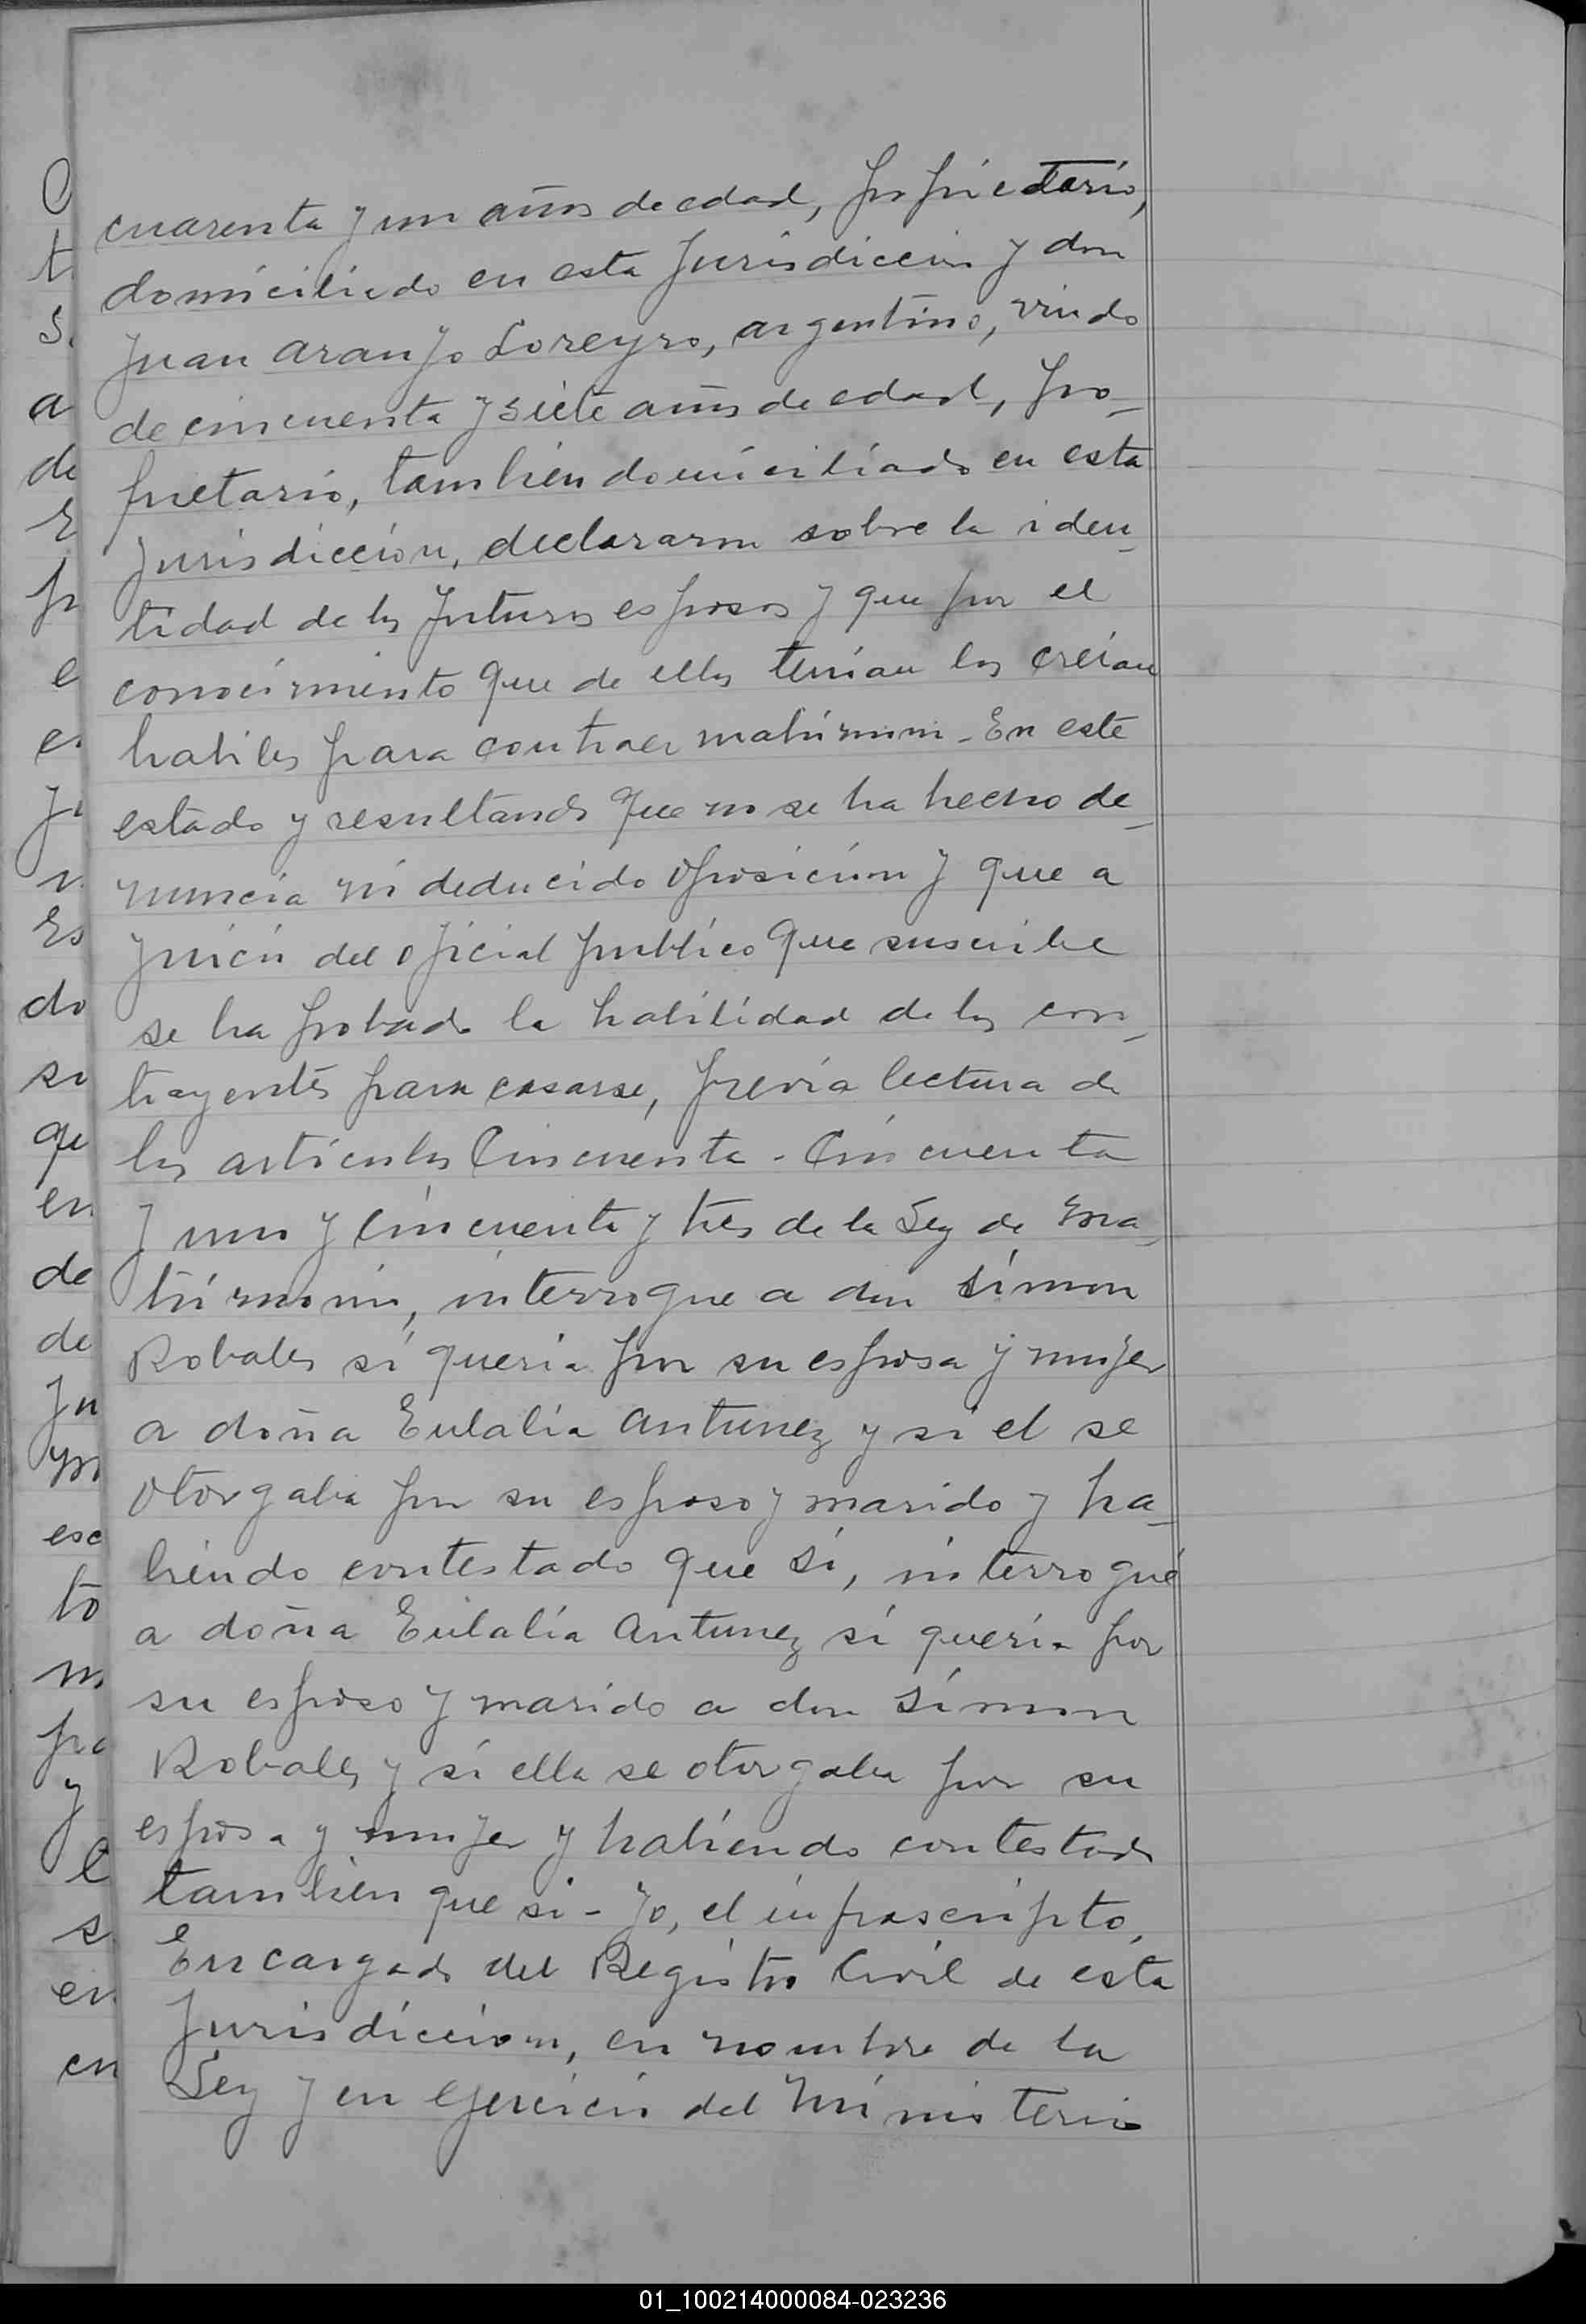 cuarenta y un años de edad, propietario,
domiciliado en esta Jurisdiccion y don
Juan Araujo Loreyro, argentino, viudo
de cincuenta y siete años de edad, pro-
pietario, tambien domiciliado en esta
Jurisdiccion, declararon sobre la iden-
tidad de los futuros esposos y que por el
conocimiento que de ellos tenian los creian
habiles para contraer matrimonio - En este
estado y resultando que no se ha hecho de-
nuncia ni deducido oposicion y que a
juicio del oficial publico que suscribe
se ha probado la habilidad de los con-
trayentes para casarse, previa lectura de
los articulos Cincuenta - Cincuenta
y uno y cincuenta y tres de la Ley de Ma-
trimonio, interrogue a don Simon
Robales si queria por su esposa y mujer
a doña Eulalia Antunez y si el se
otorgaba por su esposo y marido y ha-
biendo contestado que si, interrogué
a doña Eulalia Antunez si queria por
su esposo y marido a don Simon
Robales y si ella se otorgaba por su
esposa y mujer y habiendo contestado
tambien que si - Yo, el infrascripto,
Encargado del Registro Civil de esta
Jurisdiccion, en nombre de la
Ley y en ejercicio del Ministerio
01_100214000084-023236